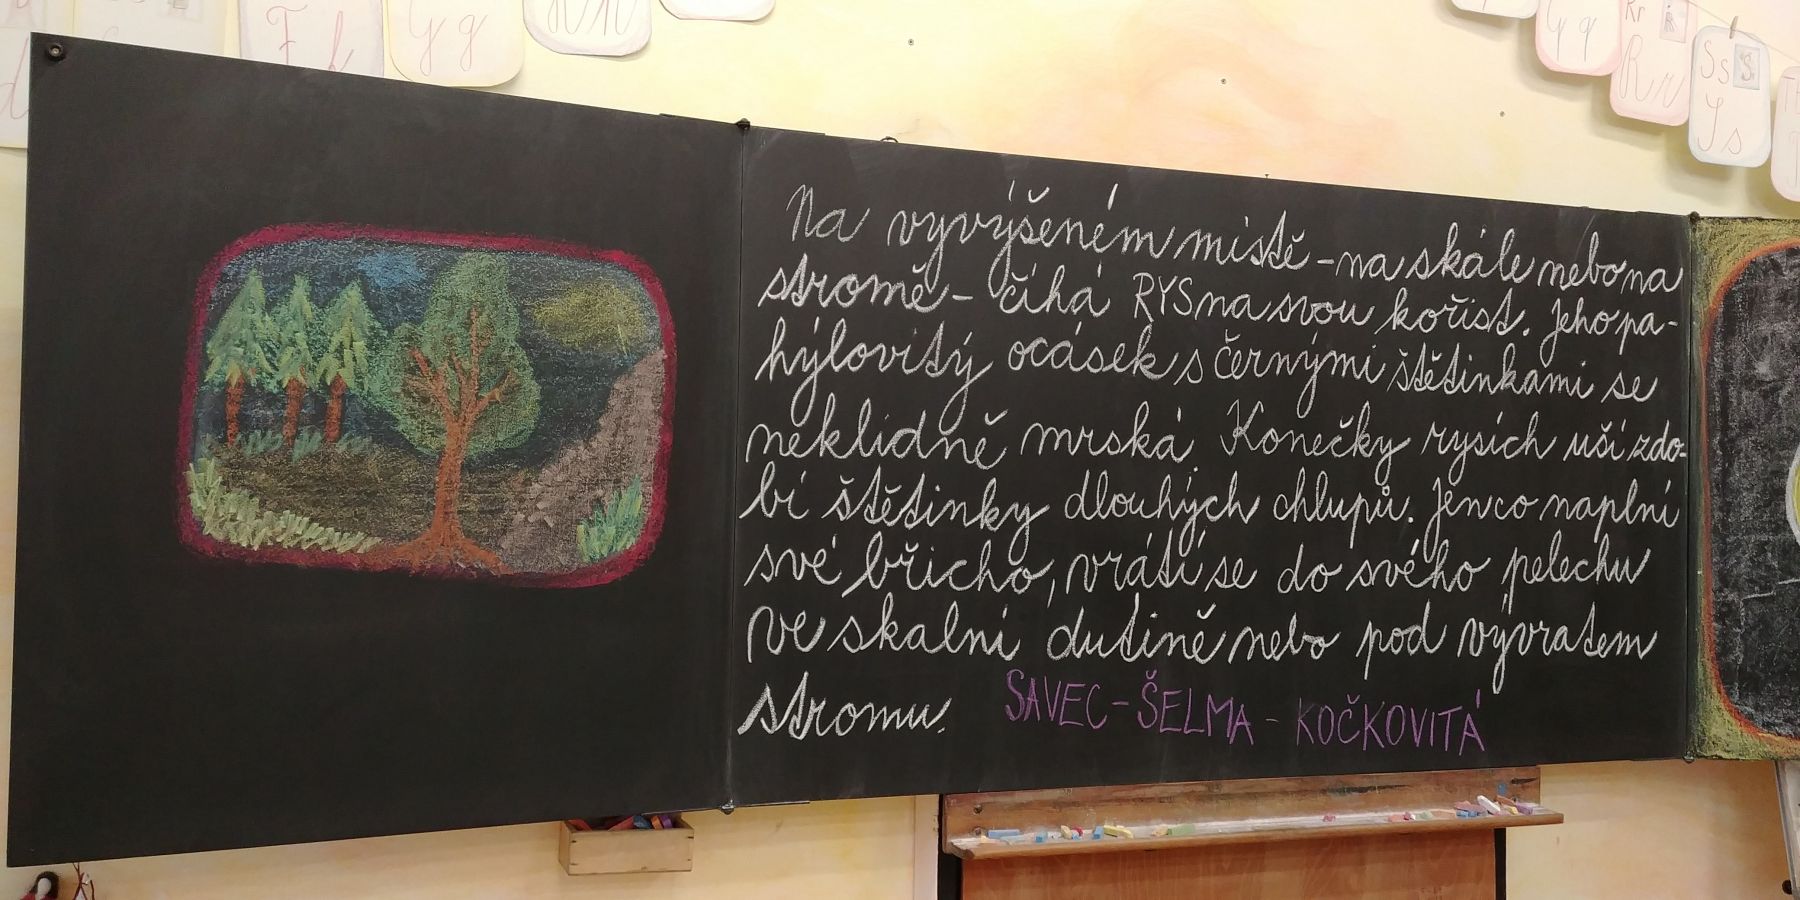 F f
G g
G g
Rr
R r
Ss S
S s
Na vyvýšeném místě - na skále nebo na
stromě - číhá RYS na svou kořist. Jeho pa-
hýlovitý ocásek s černými štětinkami se
neklidně mrská. Konečky rysích uší zdo-
bí štětinky dlouhých chlupů. Jen co naplní
své břicho, vrátí se do svého pelechu
ve skalní dutině nebo pod vývratem
stromu.
SAVEC - ŠELMA - KOČKOVITÁ